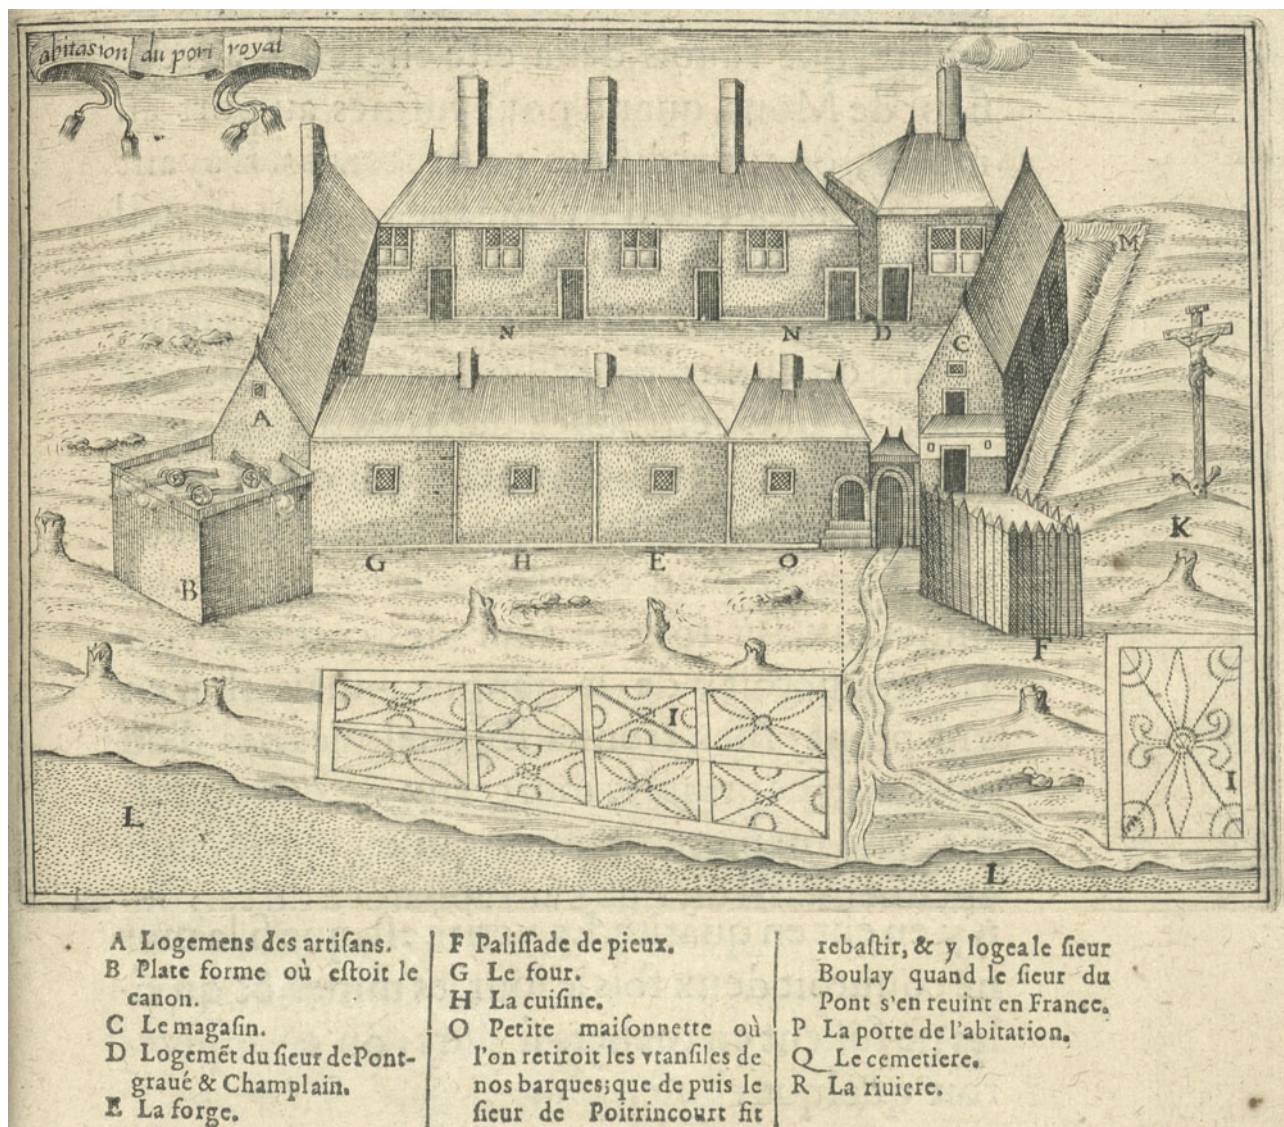 abitasion du port royal
M
N N D
C
A
K
B
G H E O
F
I
I
L
L
A Logemens des artiſans.
B Plate forme où eſtoit le
canon.
C Le magaſin.
D Logemẽt du ſieur de Pont-
graué & Champlain.
E La forge.
F Paliſſade de pieux.
G Le four.
H La cuiſine.
O Petite maiſonnette où
l'on retiroit les vtanſiles de
nos barques; que de puis le
ſieur de Poitrincourt fit
rebaſtir, & y logea le ſieur
Boulay quand le ſieur du
Pont s'en reuint en France.
P La porte de l'abitation.
Q Le cemetiere.
R La riuiere.